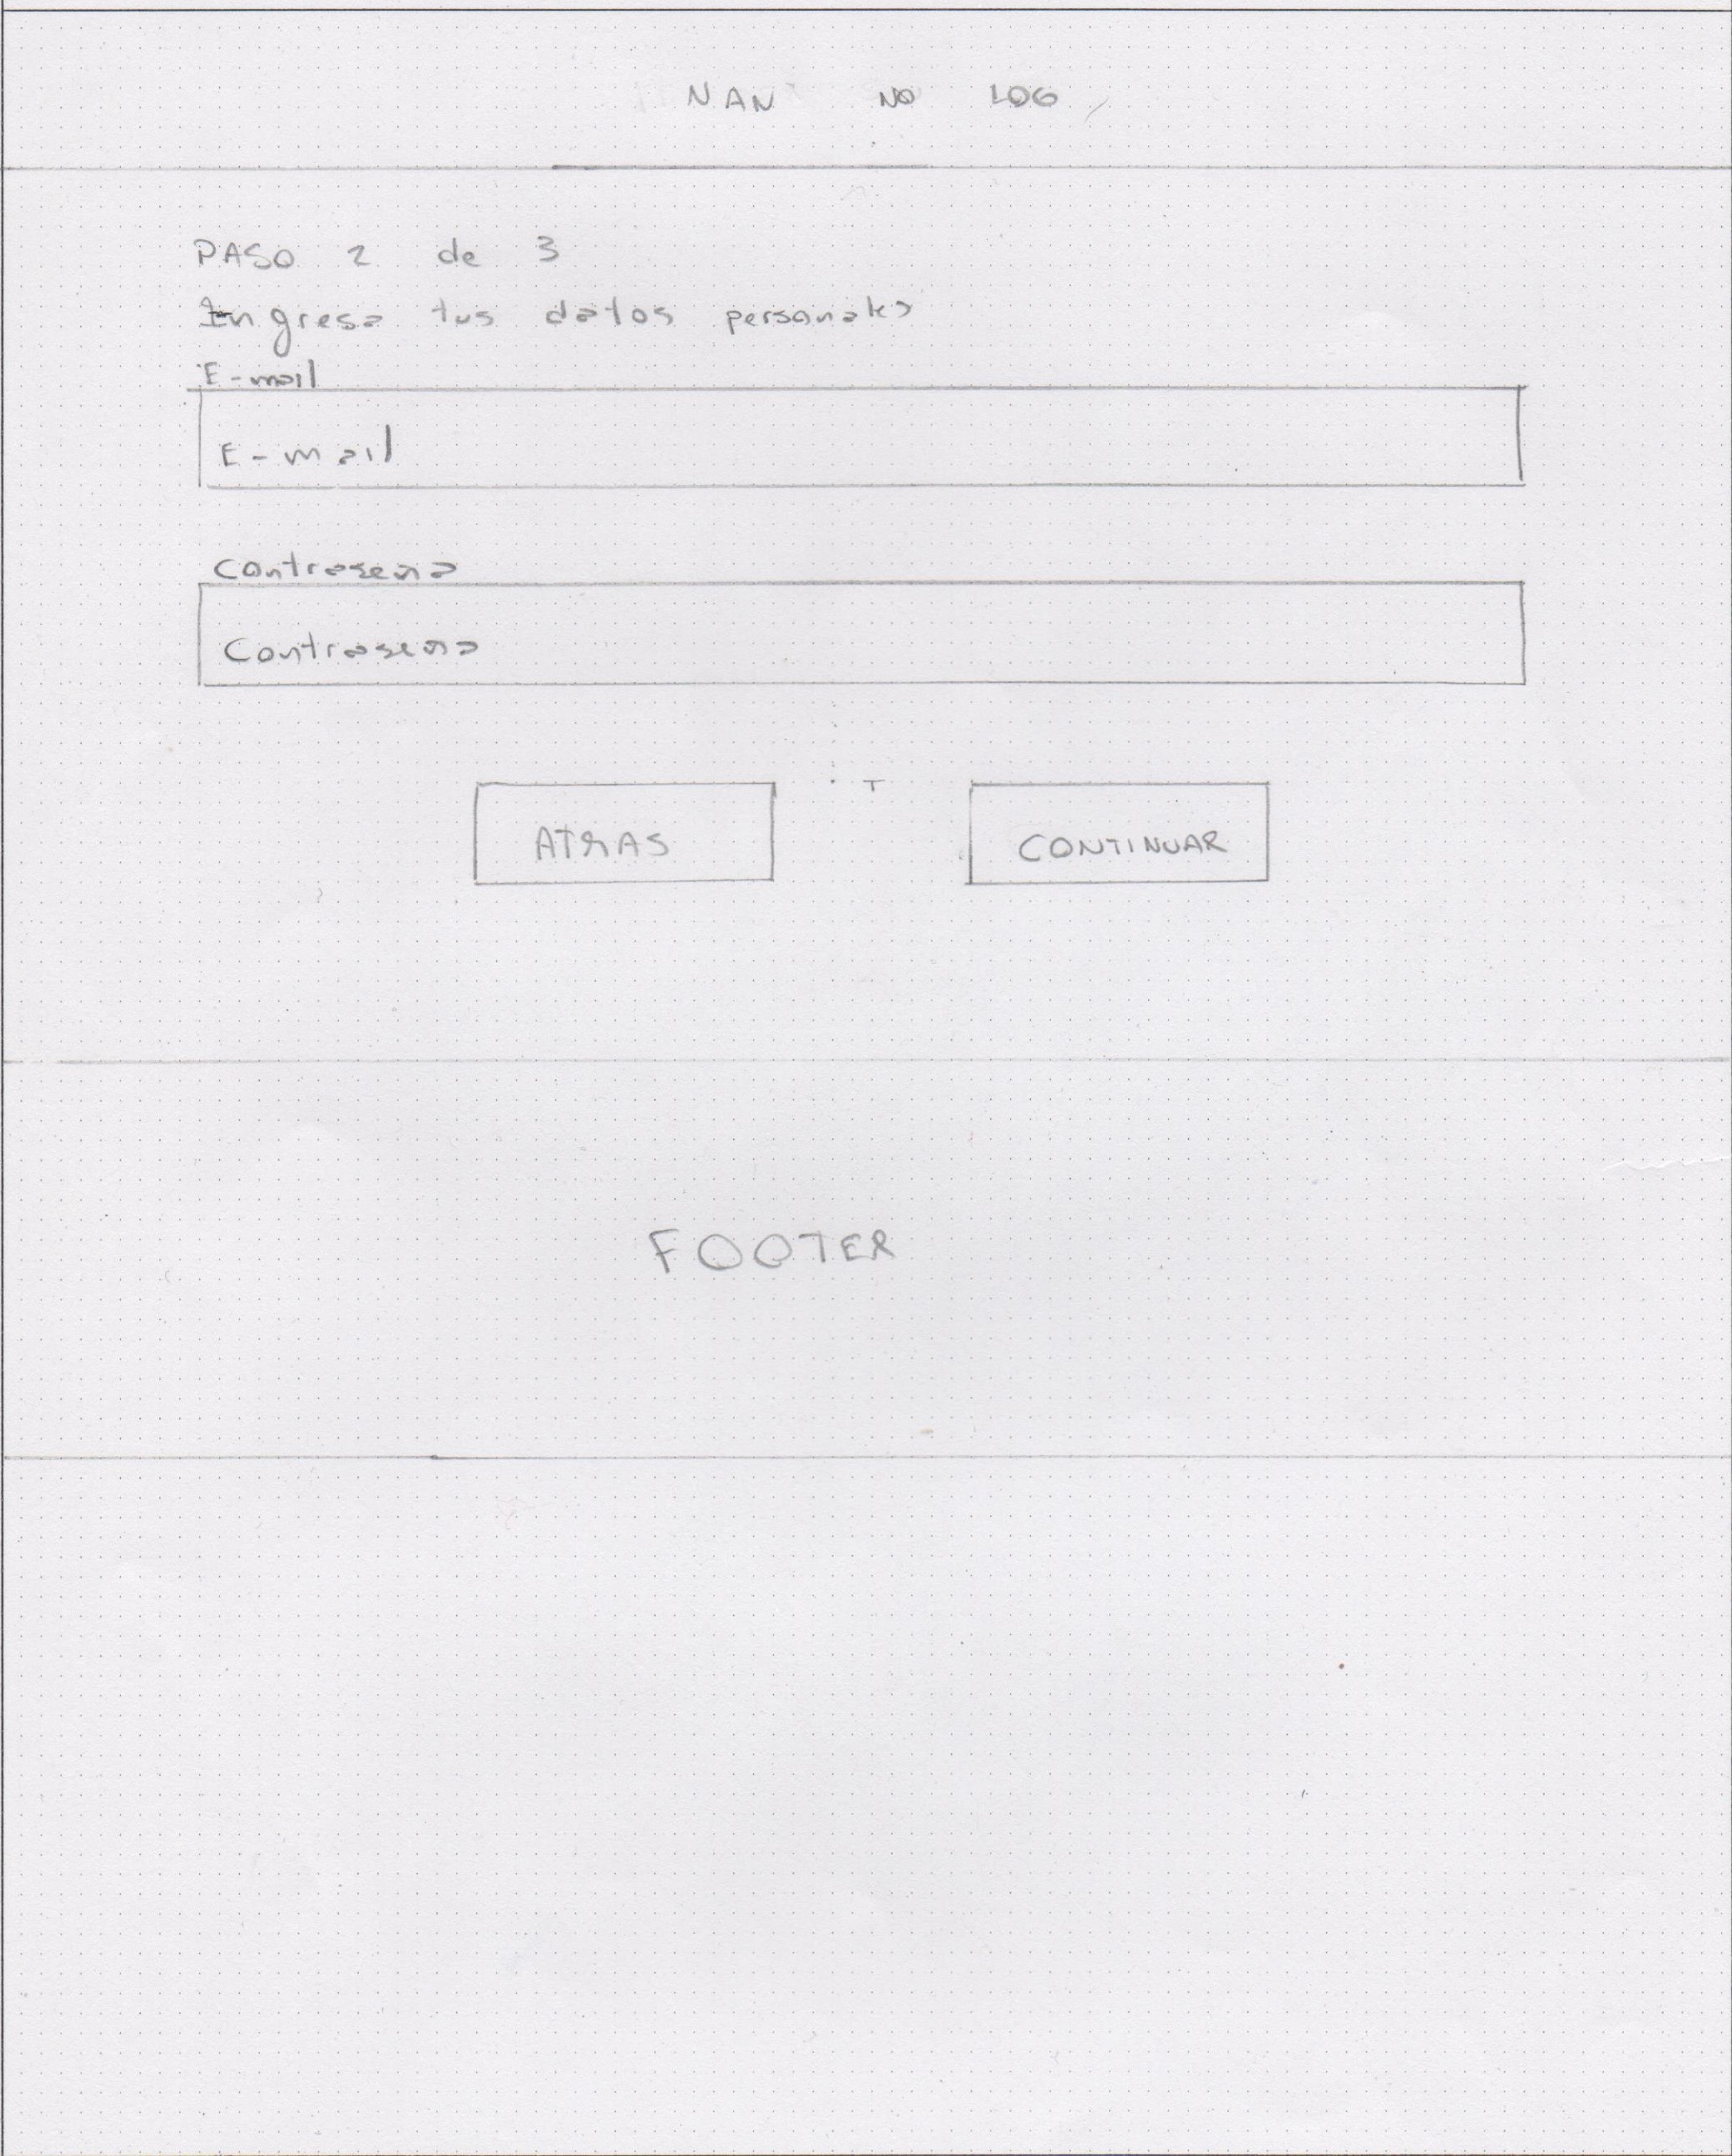 NAN NO LOG
PASO 2 de 3
Ingresa tus datos personales
E-mail
E-mail
Contraseña
Contraseña
ATRAS CONTINUAR
FOOTER